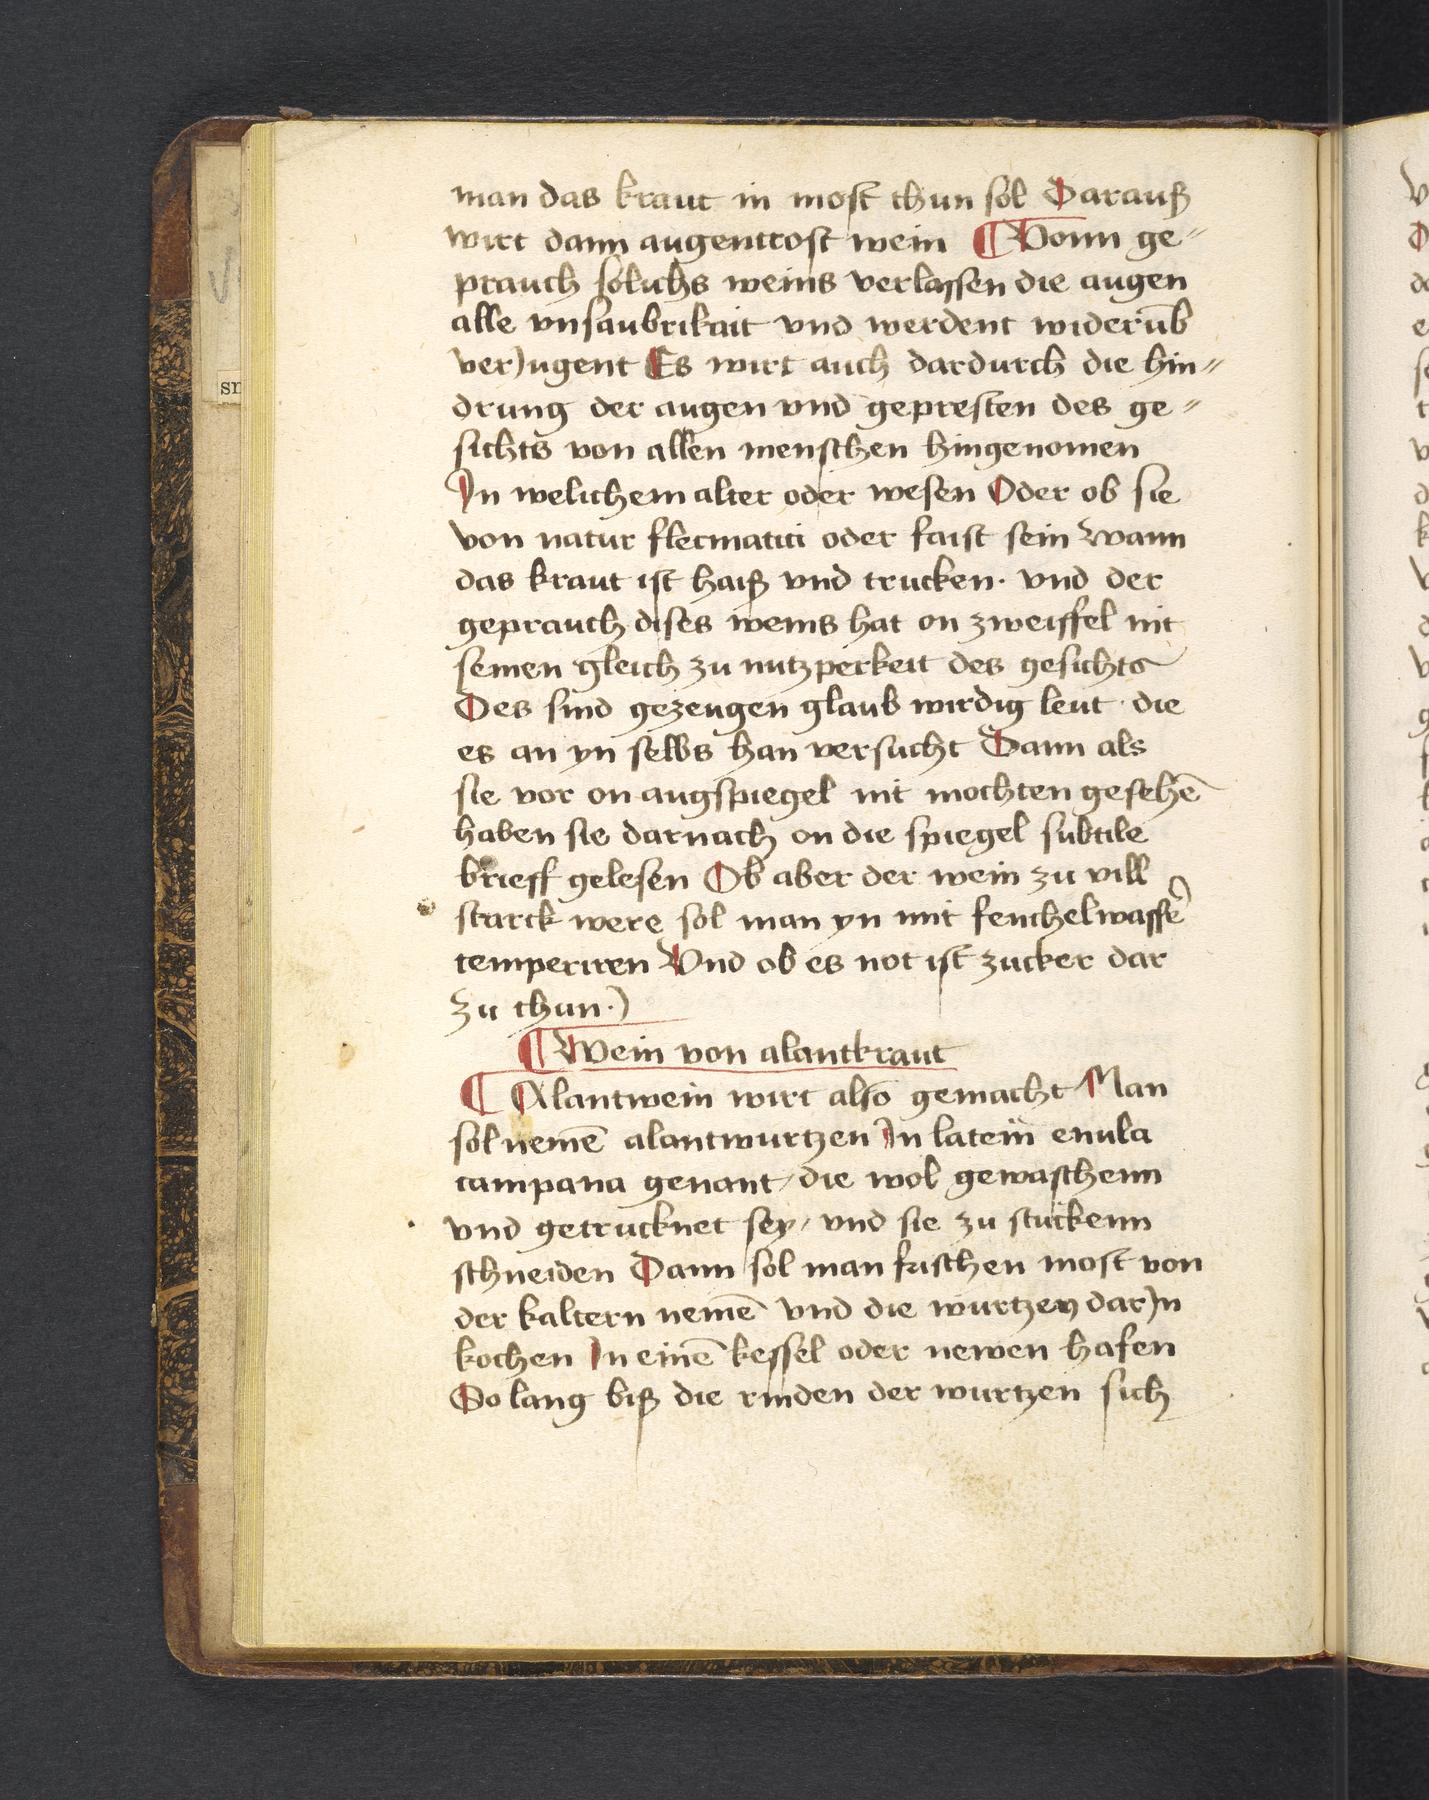 man das kraut in most thun sol Darauß
wirt dann augentrost wein ¶ Vonn ge⸗
prauch solichs weins verlassen die augen
alle vnsaubrikait vnd werdent widerūb
verJugent Es wirt auch dardurch die hin⸗
drung der augen vnd gepresten des ge⸗
sichts von allen menschen hingenomen
In welichem alter oder wesen Oder ob sie
von natur flecmatici oder faist sein Wann
das kraut ist haiß vnd trucken · vnd der
geprauch dises weins hat on zweiffel nit
seinen gleich zu nutzperkeit des gesichts
Des sind gezeugen glaub wirdig leut · die
es an yn selbs han versucht Dann als
sie vor on augspiegel nit mochten gesehē
haben sie darnach on die spiegel subtile
brieff gelesen Ob aber der wein zu vill
starck were sol man yn mit fenchelwasse͛
temperiren Vnd ob es not ist zucker dar
zu thun ·)
¶ Wein von alantkraut
¶ Alantwein wirt also gemacht Man
sol nemē alantwurtzen In latein enula
campana genant / die wol gewaschenn
vnd getrucknet sey / vnd sie zu stuckenn
schneiden Dann sol man frischen most von
der kaltern nemē vnd die wurtzen darJn
kochen In einē kessel oder newen hafen
So lang biß die rinden der wurtzen sich
sn